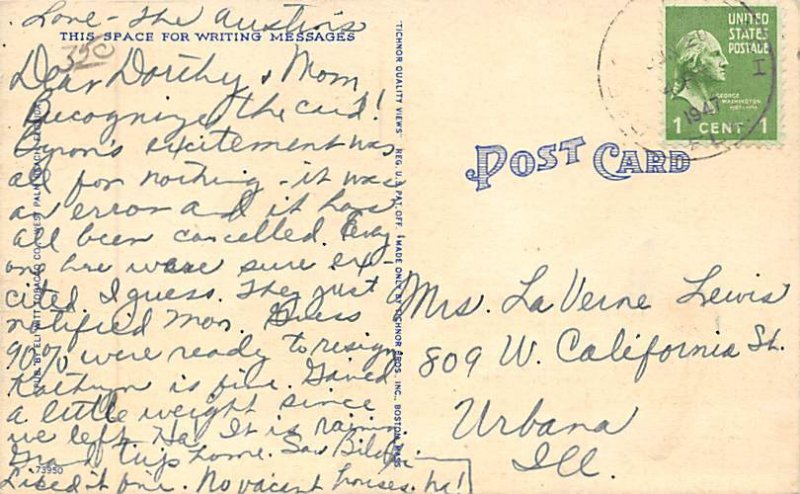 Love - The Austins
THIS SPACE FOR WRITING MESSAGES
35c
Dear Dorthy & Mom
Recognize the card!
Byron's excitement was
all for nothing - it was
an error and it has
all been cancelled. Every
one here were sure ex-
cited I guess. They just
notified Mon. Guess
90% were ready to resign.
Kathryn is fine. Gained
a little weight since
we left. Ha! It is raining.
Grand trip home. Saw
Liked it fine. No vacant houses. ha!
73950
TICHNOR QUALITY VIEWS REG. U.S. PAT. OFF. MADE ONLY BY TICHNOR BROS. INC., BOSTON, MASS.
PUB. BY ELI WITT TOBACCO CO., WEST PALM BEACH,
POST CARD
UNITED
STATES
POSTAGE
GEORGE
WASHINGTON
1 CENT 1
1941
Mrs. La Verne Lewis
809 W. California St.
Urbana
Ill.